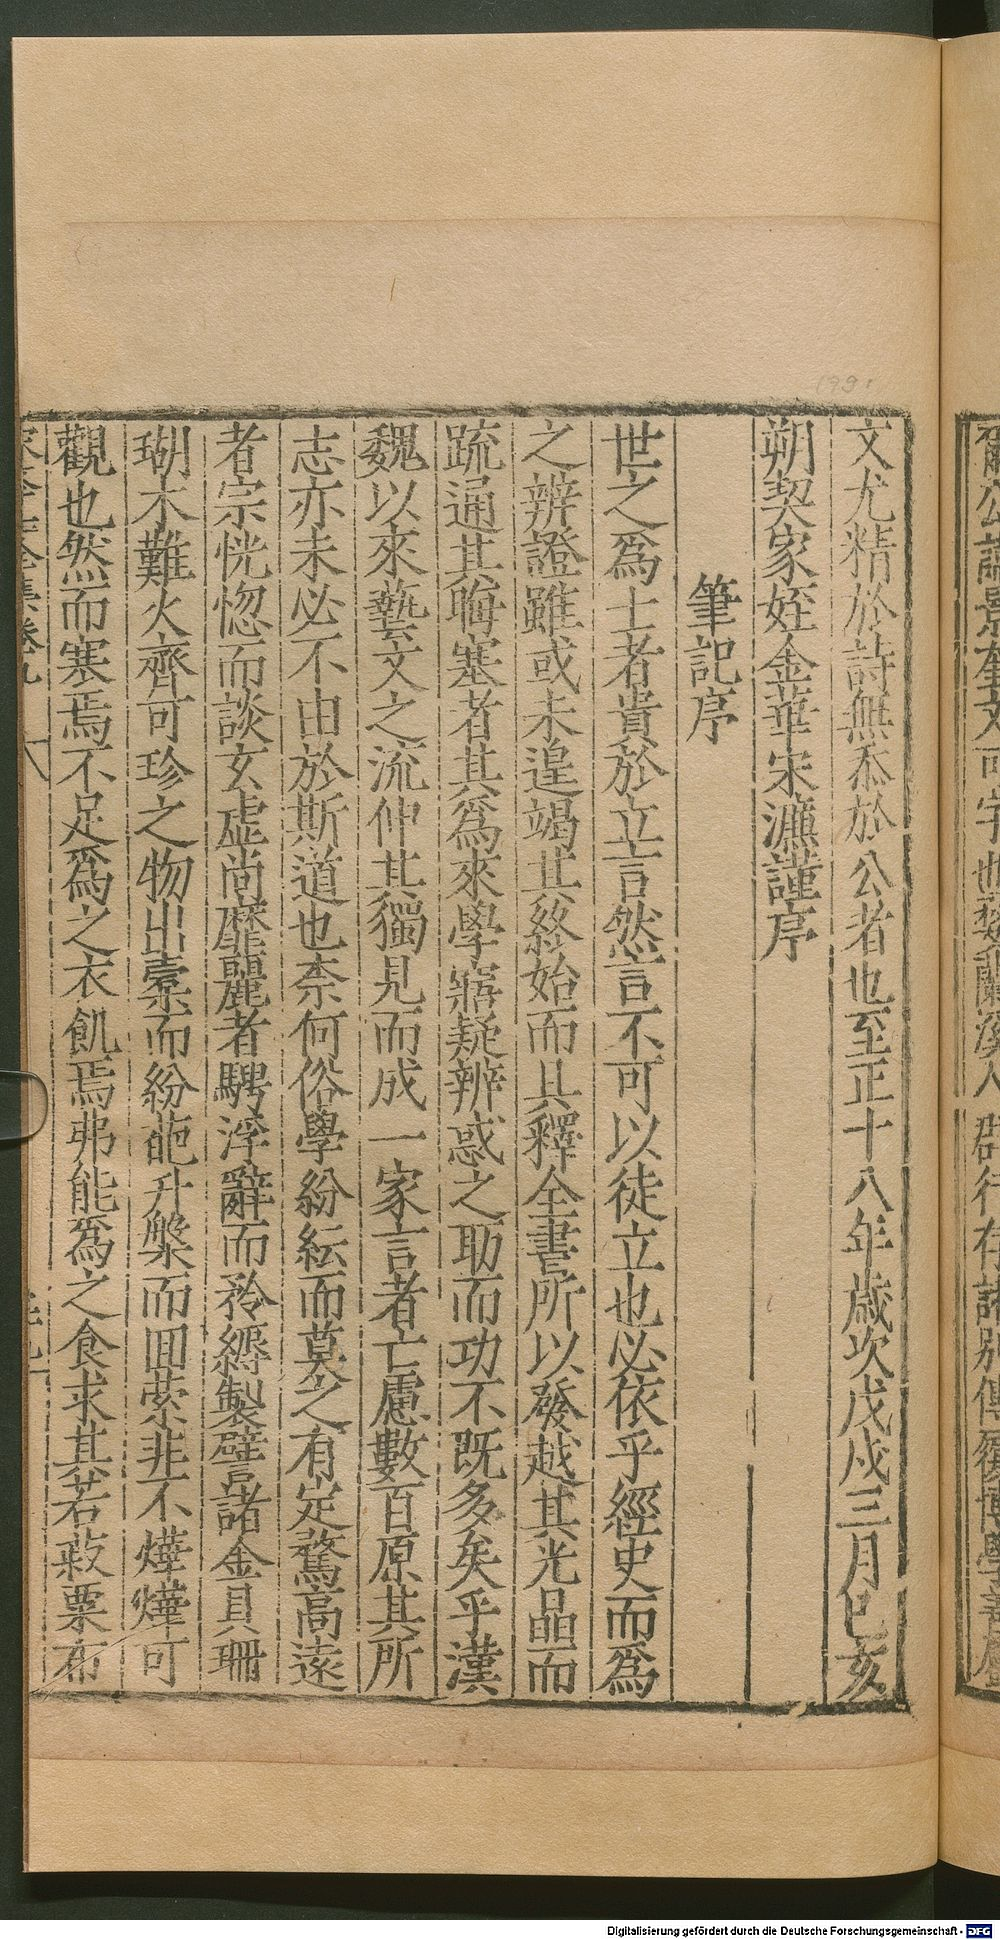 文尤精於詩無忝於 公者也至正十八年歲次戊戌三月己亥
朔契家姪金華宋濂謹序
筆記序
世之為士者貴於立言然言不可以徒立也必依乎經史而為
之辨證雖或未遑竭其終始而具釋全書所以發越其光晶而
疏通其晦塞者其為來學寤疑辨惑之助而功不既多矣乎漢
魏以來藝文之流仲其獨見而成一家言者亡慮數百原其所
志亦未必不由於斯道也柰何俗學紛紜而莫之有定騖高遠
者宗恍惚而談玄虛尚靡麗者騁浮辭而矜縟製譬諸金貝珊
瑚木難火齊可珍之物出橐而紛葩升槃而回縈非不燁燁可
觀也然而寒焉不足為之衣飢焉弗能為之食求其若菽粟布
卷九
Digitalisierung gefördert durch die Deutsche Forschungsgemeinschaft - DFG